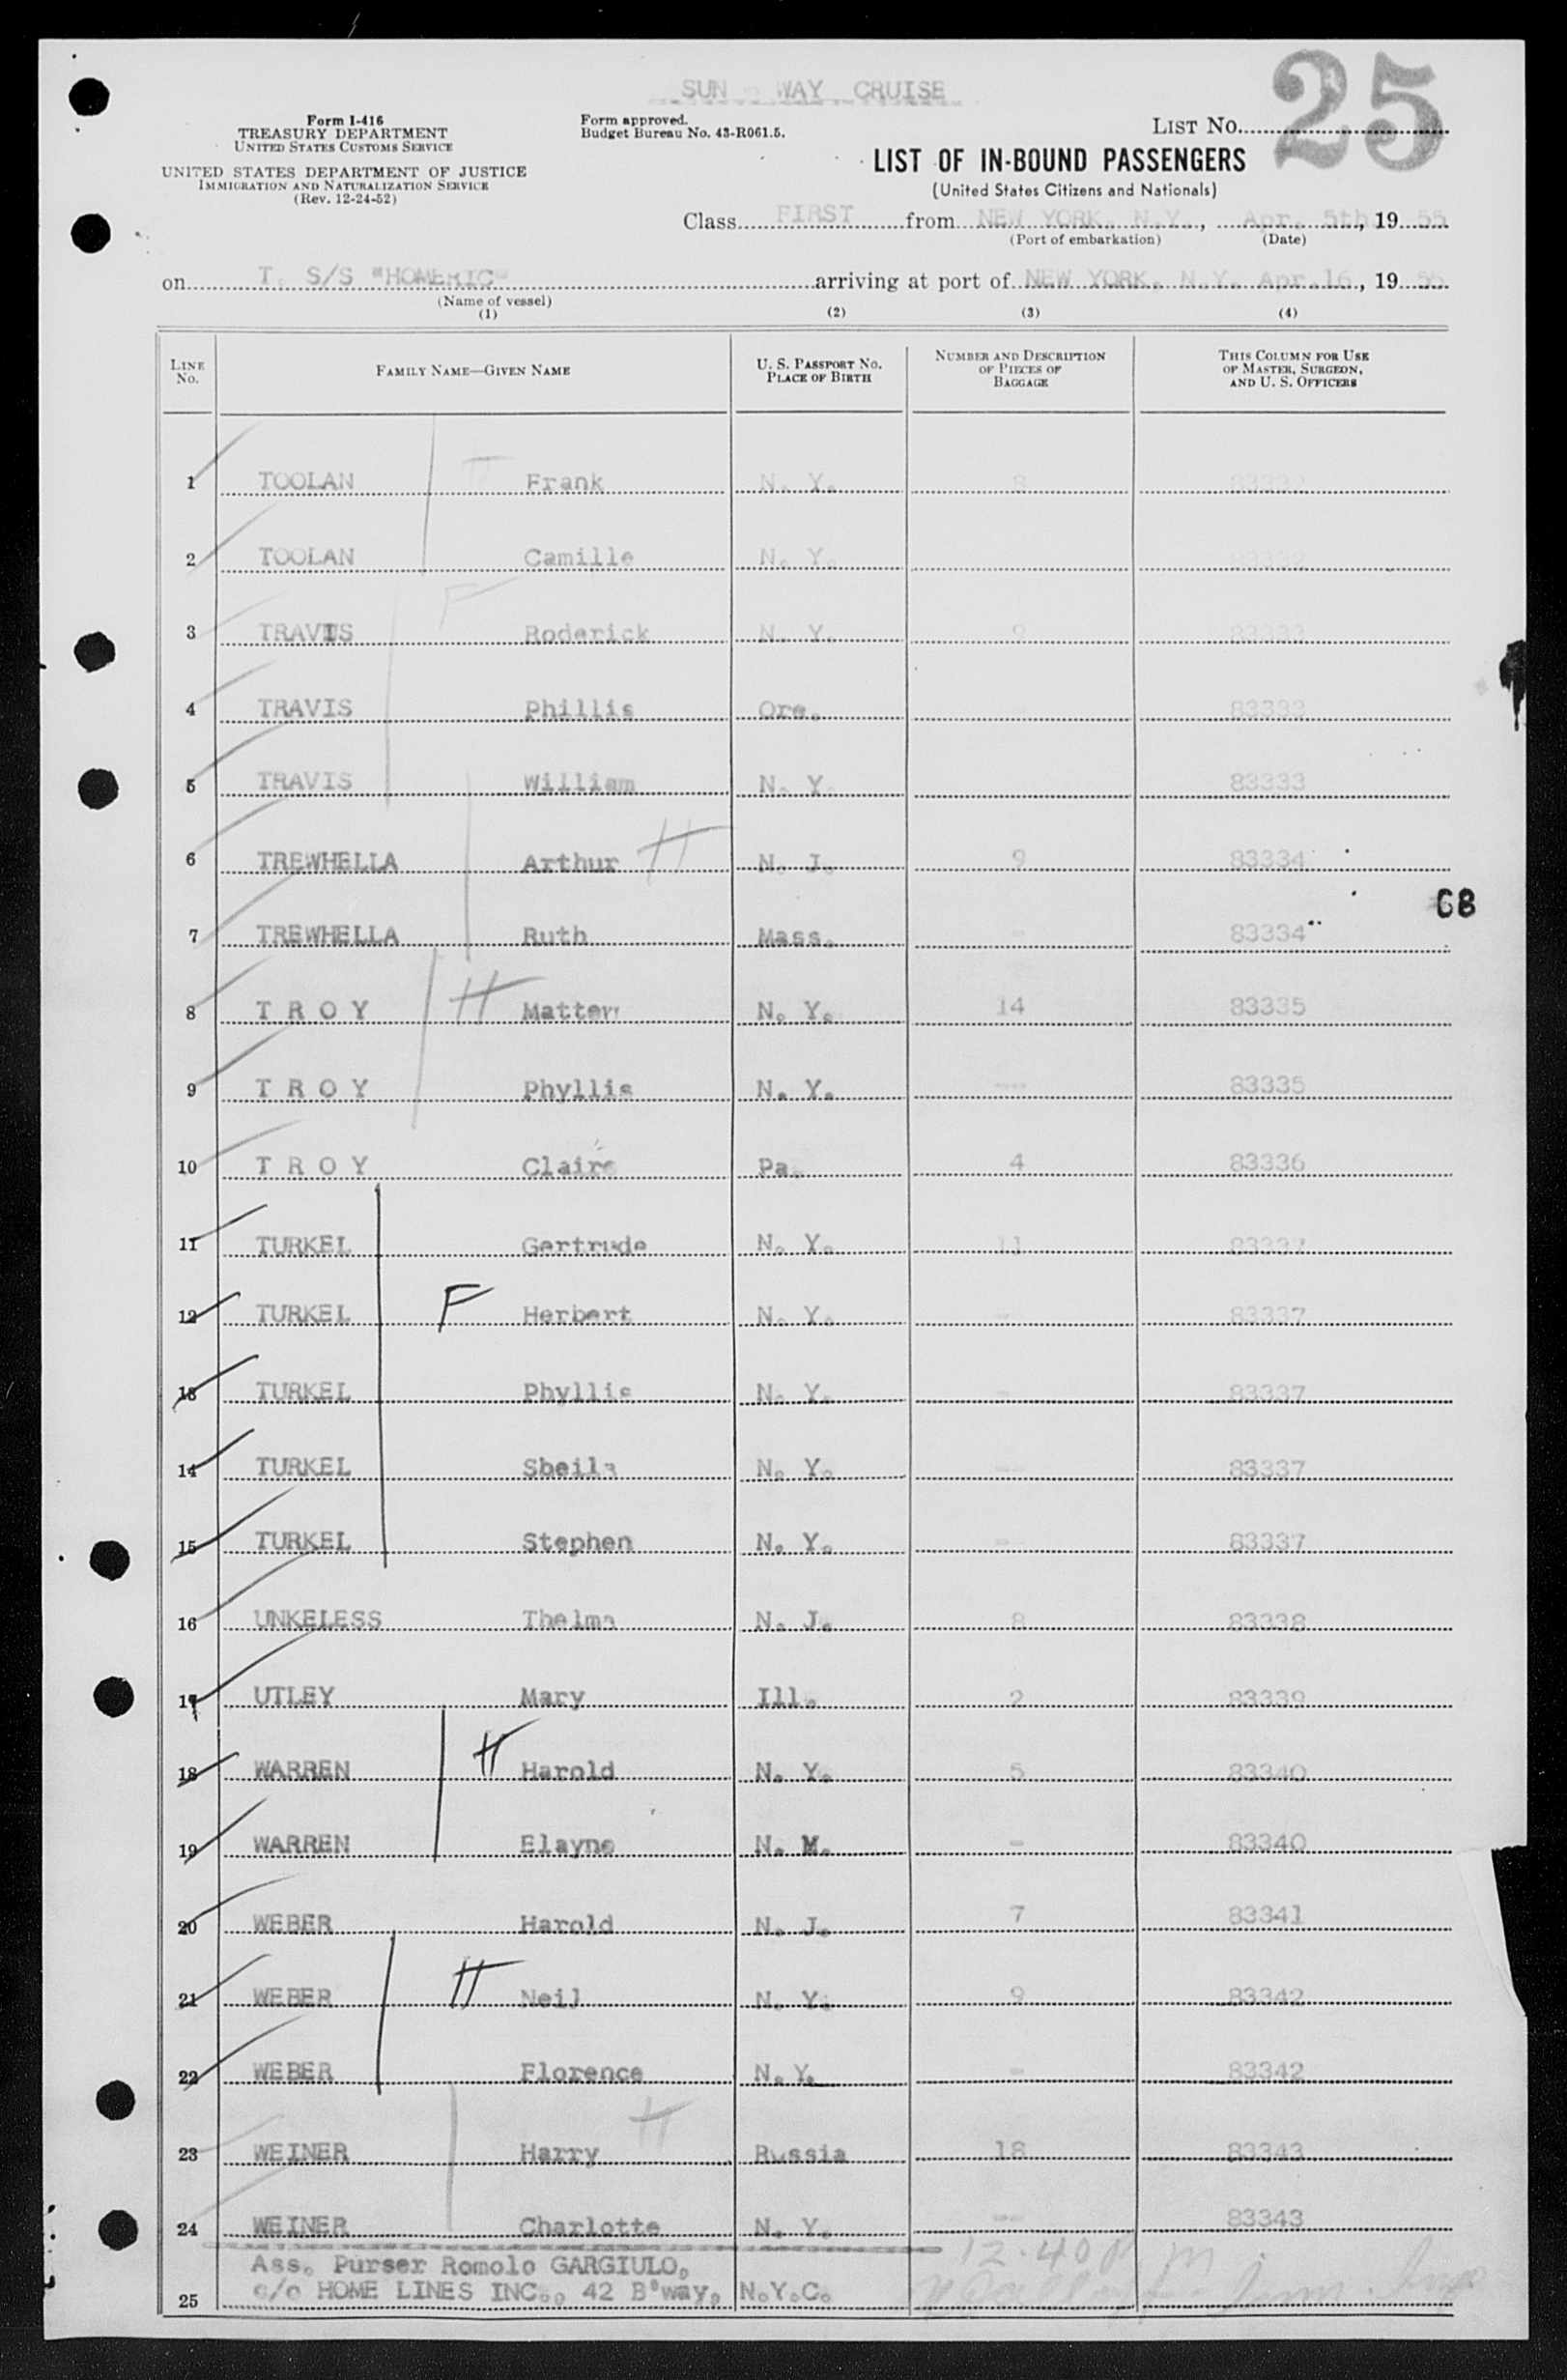 SUN - WAY CRUISE
25
Form I-416
TREASURY DEPARTMENT
UNITED STATES CUSTOMS SERVICE
UNITED STATES DEPARTMENT OF JUSTICE
IMMIGRATION AND NATURALIZATION SERVICE
(Rev. 12-24-52)
Form approved.
Budget Bureau No. 43-R061.5.
LIST NO.
LIST OF IN-BOUND PASSENGERS
(United States Citizens and Nationals)
Class FIRST from NEW YORK, N.Y., Apr. 5th, 19 55
(Port of embarkation) (Date)
on T. S/S "HOMERIC" arriving at port of NEW YORK, N.Y. Apr.16, 19 55
(Name of vessel)
(1) (2) (3) (4)
LINE NO. FAMILY NAME—GIVEN NAME U. S. PASSPORT NO. PLACE OF BIRTH NUMBER AND DESCRIPTION OF PIECES OF BAGGAGE THIS COLUMN FOR USE OF MASTER, SURGEON, AND U. S. OFFICERS
1 TOOLAN Frank N. Y. 8 83332
2 TOOLAN Camille N. Y. 83332
3 TRAVIS Roderick N. Y. 9 83333
4 TRAVIS Phillis Ore. 83333
5 TRAVIS William N. Y. 83333
6 TREWHELLA Arthur H N. J. 9 83334
68
7 TREWHELLA Ruth Mass. - 83334
8 T R O Y H Mattew N. Y. 14 83335
9 T R O Y Phyllis N. Y. -- 83335
10 T R O Y Claire Pa. 4 83336
11 TURKEL Gertrude N. Y. 11 83337
12 TURKEL F Herbert N. Y. -- 83337
13 TURKEL Phyllis N. Y. - 83337
14 TURKEL Sheila N. Y. -- 83337
15 TURKEL Stephen N. Y. -- 83337
16 UNKELESS Thelma N. J. 8 83338
17 UTLEY Mary Ill. 2 83339
18 WARREN H Harold N. Y. 5 83340
19 WARREN Elayne N. M. - 83340
20 WEBER Harold N. J. 7 83341
21 WEBER H Neil N. Y. 9 83342
22 WEBER Florence N. Y. - 83342
23 WEINER Harry H Russia 18 83343
24 WEINER Charlotte N. Y. -- 83343
Ass. Purser Romolo GARGIULO, 12.40 P M
25 c/o HOME LINES INC., 42 B'way, N.Y.C.